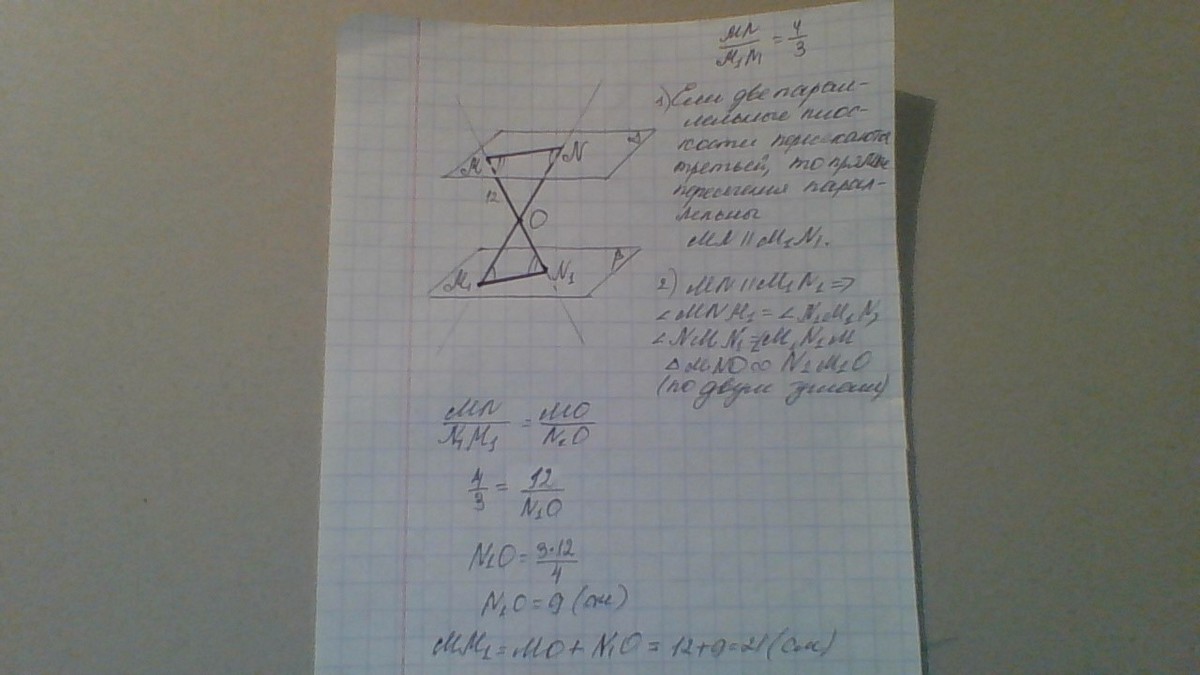 MN/M₁N₁ = 4/3
1) Если две парал-
лельные плос-
кости пересекаются
третьей, то прямые
пересечения парал-
лельны
MN || M₁N₁.
2) MN || M₁N₁ =>
∠MNM₁ = ∠N₁M₁N,
∠NMN₁ = M₁N₁M
ΔMNO ∞ N₁M₁O
(по двум углам)
M N
12
O
M₁ N₁ β
MN/N₁M₁ = MO/N₁O
4/3 = 12/N₁O
N₁O = 3·12/4
N₁O = 9 (см)
MM₁ = MO + N₁O = 12+9=21 (см)